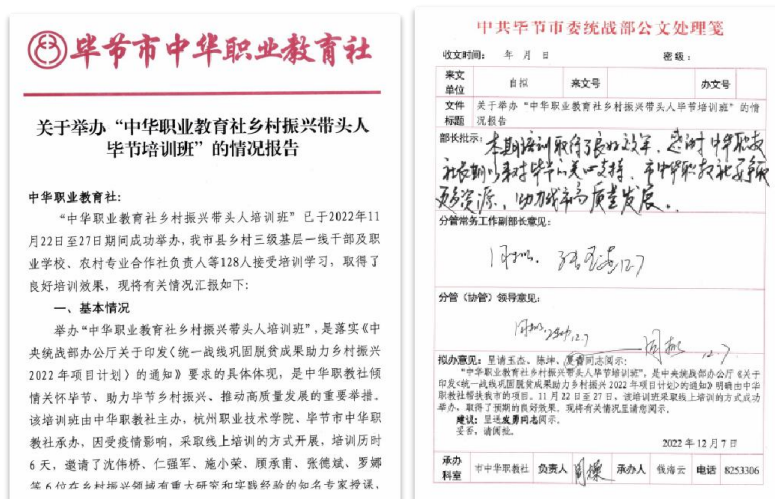 毕节市中华职业教育社
关于举办“中华职业教育社乡村振兴带头人
毕节培训班”的情况报告
中华职业教育社：
“中华职业教育社乡村振兴带头人培训班”已于2022年11
月22日至27日期间成功举办，我市县乡村三级基层一线干部及职
业学校、农村专业合作社负责人等128人接受培训学习，取得了
良好培训效果，现将有关情况汇报如下：
一、基本情况
举办“中华职业教育社乡村振兴带头人培训班”，是落实《中
央统战部办公厅关于印发〈统一战线巩固脱贫成果助力乡村振兴
2022年项目计划〉的通知》要求的具体体现，是中华职教社倾
情关怀毕节、助力毕节乡村振兴、推动高质量发展的重要举措。
该培训班由中华职教社主办，杭州职业技术学院、毕节市中华职
教社承办，因受疫情影响，采取线上培训的方式开展，培训历时
6天，邀请了沈伟桥、仁强军、施小荣、顾承甫、张德斌、罗娜
等6位在乡村振兴领域有重大研究和实践经验的知名专家授课，
中共毕节市委统战部公文处理笺
收文时间： 年 月 日 密级：
来文单位 自拟 来文号 办文号
文件标题 关于举办“中华职业教育社乡村振兴带头人毕节培训班”的情
况报告
部长批示：本期培训取得了良好效果，感谢中华职教
社长期以来对毕节的关心支持，市中华职教社要争取
更多资源，助力我市高质量发展。
分管常务工作副部长意见：
同拟. 12.7
分管（协管）领导意见：
同拟. 12.7 同拟 12.7
拟办意见：呈请玉杰、陈坤、同志阅示：
“中华职业教育社乡村振兴带头人毕节培训班”，是中央统战部办公厅《关于
印发〈统一战线巩固脱贫成果助力乡村振兴2022年项目计划〉的通知》明确由中华
职教社帮扶我市的项目。11月22日至27日，该培训班采取线上培训的方式成功
举办，取得了预期的良好效果。现将有关情况呈请您阅示。
建议：呈送发勇同志阅示。
妥否，请阅批。
2022年12月7日
承办科室 市中华职教社 负责人 承办人 钱海云 电话 8253306